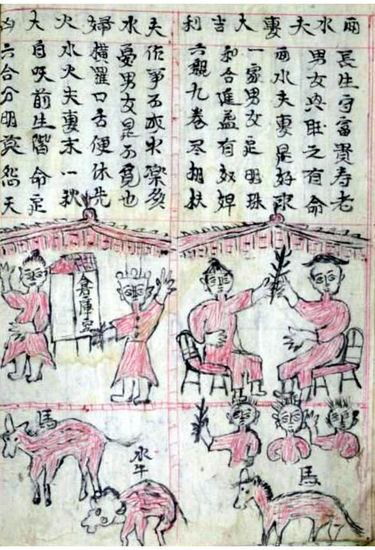 兩水夫妻大吉利
長生守富貴寿老
男女興旺之有命
兩水夫妻是好求
一雙男女是明珠
和合進益有奴婢
六親九眷尽相扶
夫水婦火大凶
作事不成求
憂男女是不
横羅口舌便休
水火夫妻末一秋
自叹前生階命定
六合分明莫怨天
大倉陣空
馬
水牛
馬